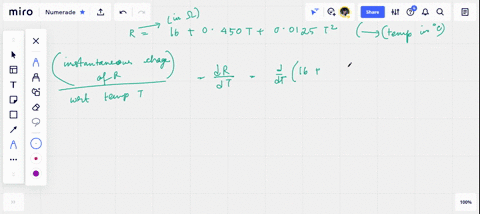 miro Numerade Share
(in Ω)
R = 16 + 0.450 T + 0.0125 T² (→ (temp in °C)
(instantaneous change of R)
wert temp T
= dR/dT = d/dT (16 +
100%